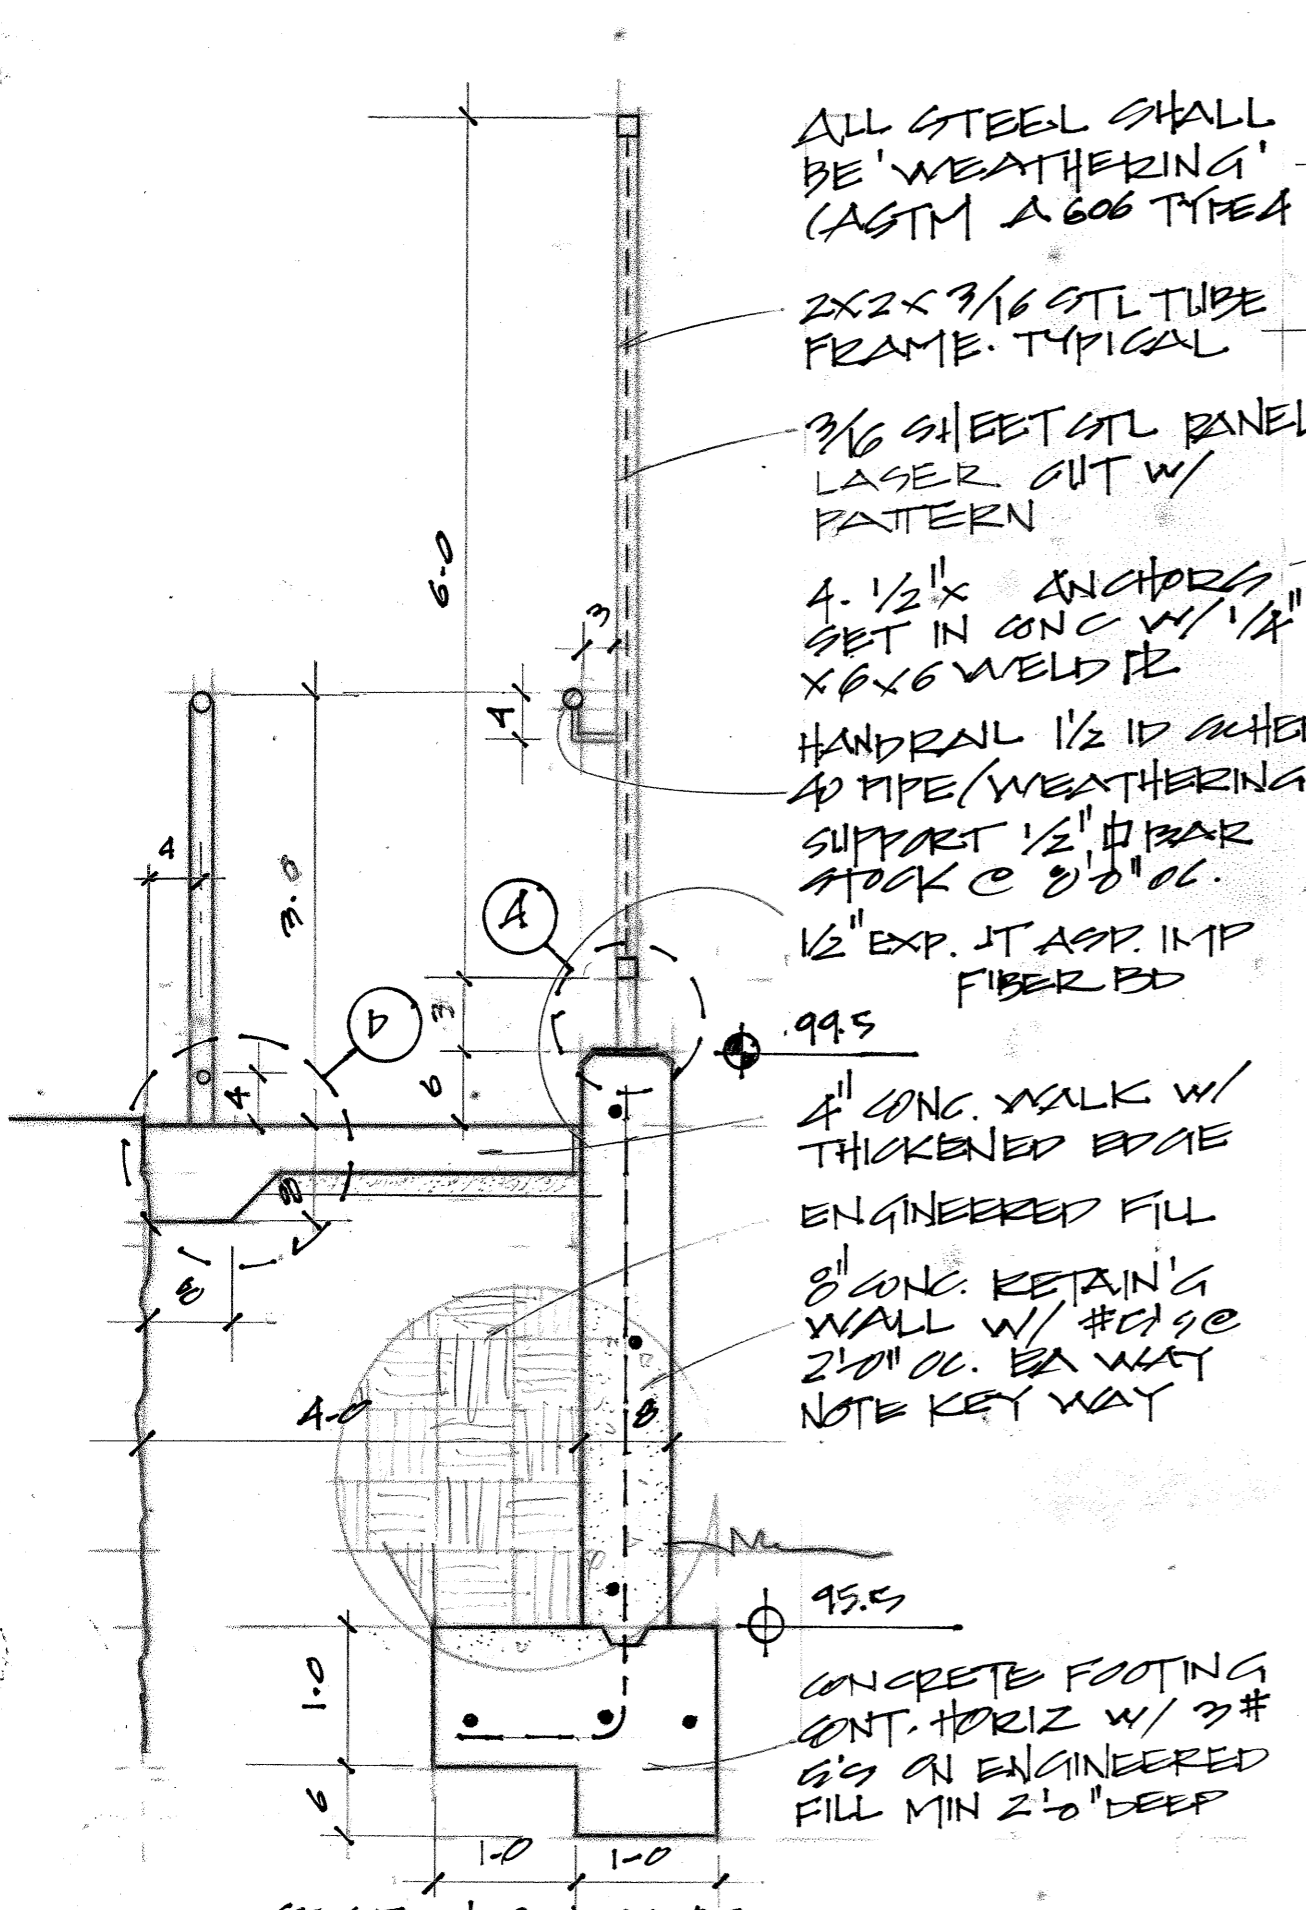 ALL STEEL SHALL
BE 'WEATHERING'
(ASTM A 606 TYPE 4
2X2X 3/16 STL TUBE
FRAME. TYPICAL
3/16 SHEET STL PANEL
LASER CUT W/
PATTERN
4. 1/2"X ANCHORS
SET IN CONC W/ 1/4"
X6X6 WELD PL
HANDRAIL 1 1/2 ID SCHED
40 PIPE/WEATHERING
SUPPORT 1/2" BAR
STOCK @ 8'0" OC.
1/2" EXP. JT ASP. IMP
FIBER BD
99.5
4" CONC. WALK W/
THICKENED EDGE
ENGINEERED FILL
8" CONC. RETAIN'G
WALL W/ #5's @
2'-0" OC. EA WAY
NOTE KEY WAY
95.5
CONCRETE FOOTING
CONT. HORIZ W/ 3#
5'S ON ENGINEERED
FILL MIN 2'0" DEEP
6-0
3
4
4
3-0
A
D
3
6
4
8
8
4-0
8
1-0
6
1-0
1-0